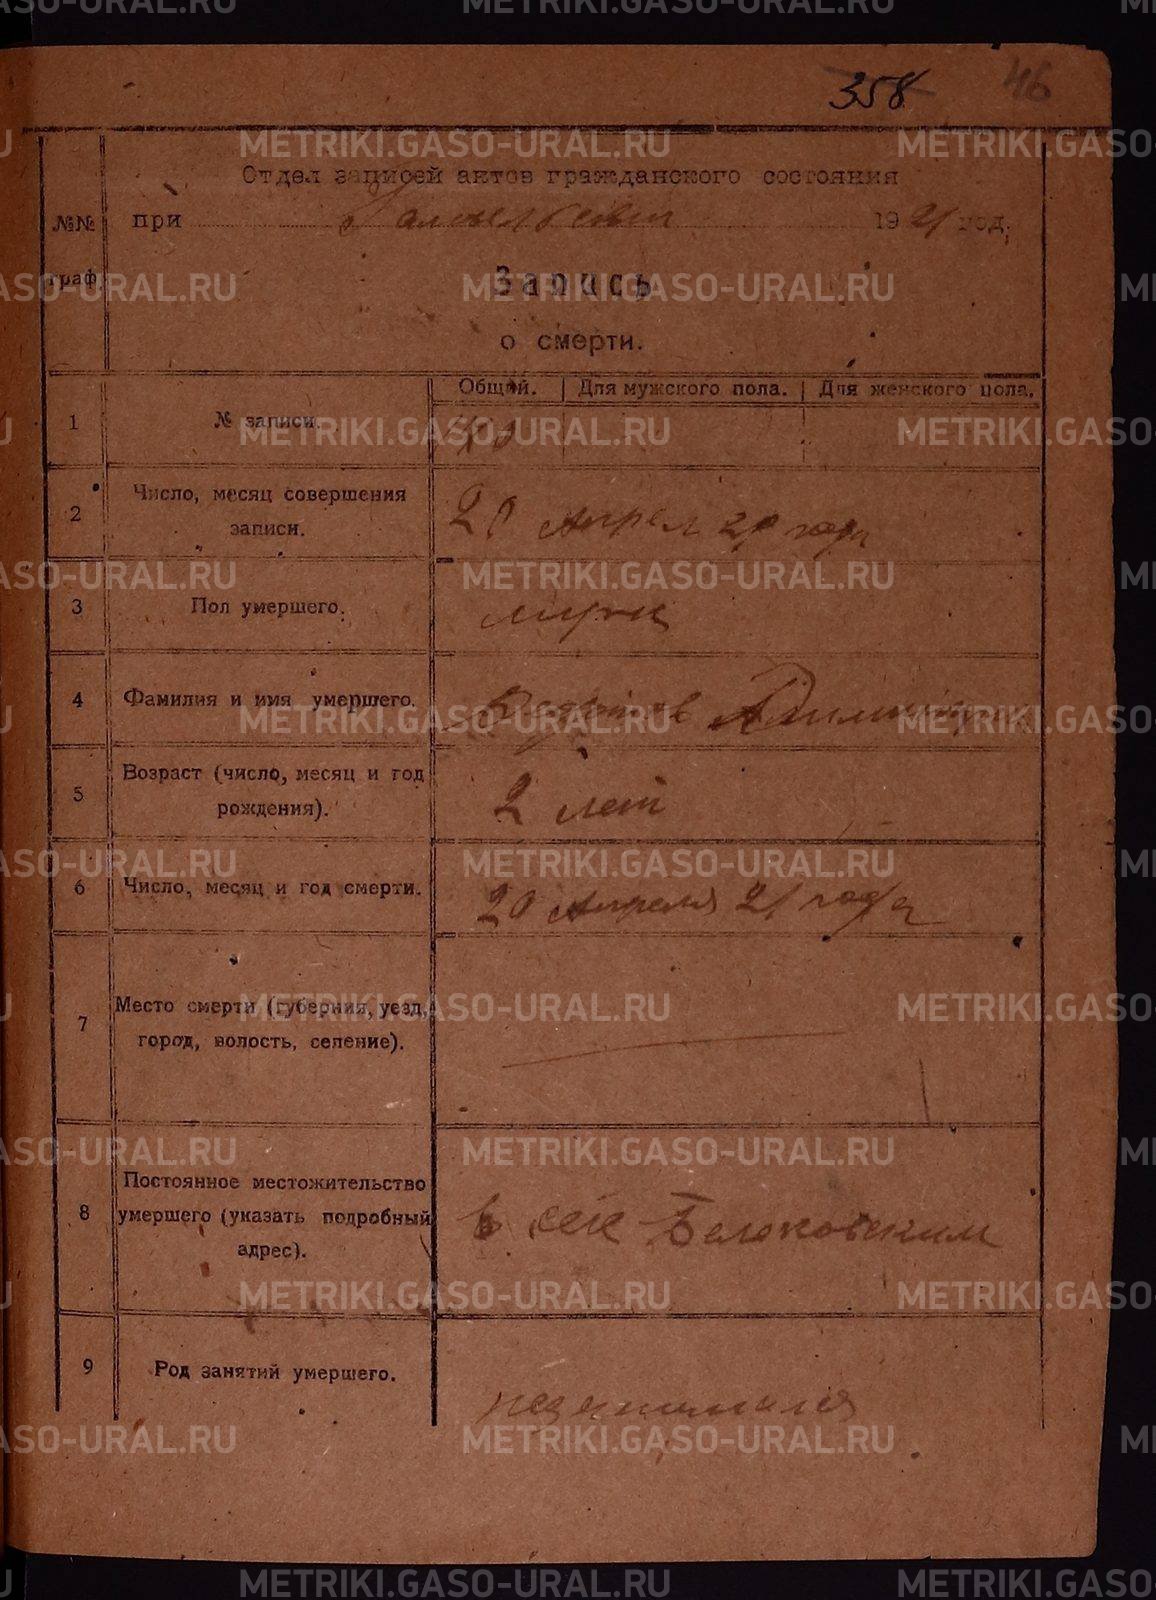 358 46
Отдел записей актов гражданского состояния
№№ при 1921 год.
граф.
Запись
о смерти.
Общий. Для мужского пола. Для женского пола.
1 № записи.
2 Число, месяц совершения
записи.
20 Апрел 21 года
3 Пол умершего. мужск
4 Фамилия и имя умершего.
5 Возраст (число, месяц и год
рождения).
2 лет
6 Число, месяц и год смерти. 20 Апреля 21 года
7 Место смерти (губерния, уезд,
город, волость, селение).
8 Постоянное местожительство
умершего (указать подробный
адрес).
в селе
9 Род занятий умершего.
METRIKI.GASO-URAL.RU